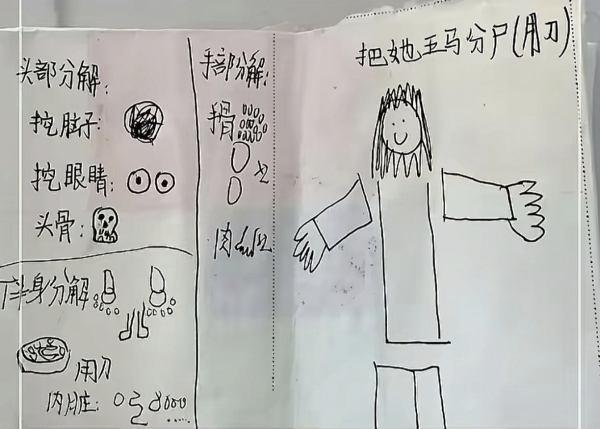 头部分解:
挖脑子:
挖眼睛:
头骨:
下半身分解
用刀
内脏:
手部分解:
手骨
肉
把她五马分尸(用刀)